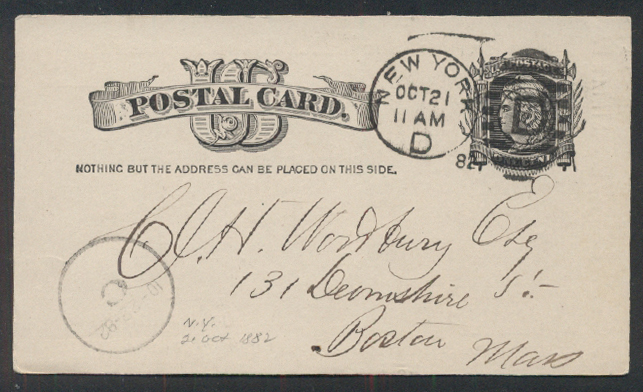 US
POSTAL CARD.
NOTHING BUT THE ADDRESS CAN BE PLACED ON THIS SIDE.
NEW YORK
OCT 21
11 AM
D
82
D
C. H. Woodbury Esq
131 Devonshire St.
Boston Mass
N.Y.
21 Oct 1882